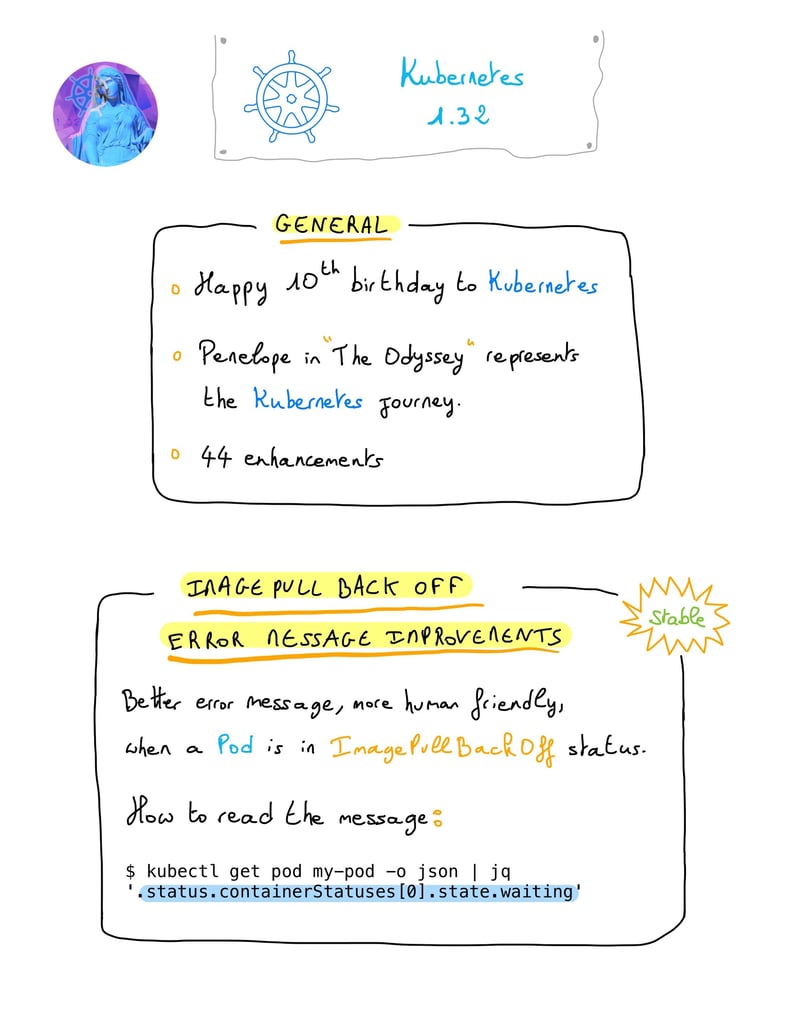 Kubernetes
1.32
GENERAL
Happy 10th birthday to Kubernetes
Penelope in "The Odyssey" represents
the Kubernetes journey.
44 enhancements
IMAGE PULL BACK OFF
ERROR MESSAGE IMPROVEMENTS
stable
Better error message, more human friendly,
when a Pod is in ImagePullBackOff status.
How to read the message:
$ kubectl get pod my-pod -o json | jq
'.status.containerStatuses[0].state.waiting'